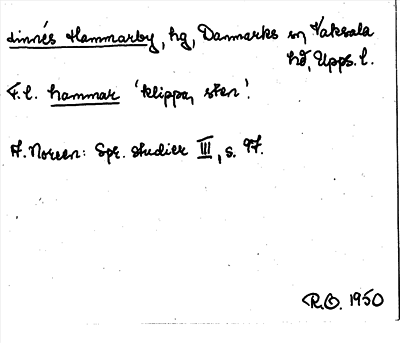 Linnés Hammarby, hg, Danmarks sn, Vaksala
hd, Upps. l.
F.l. hammar 'klippa, sten'.
A. Noreen: Spr. studier III, s. 97.
R.O. 1950